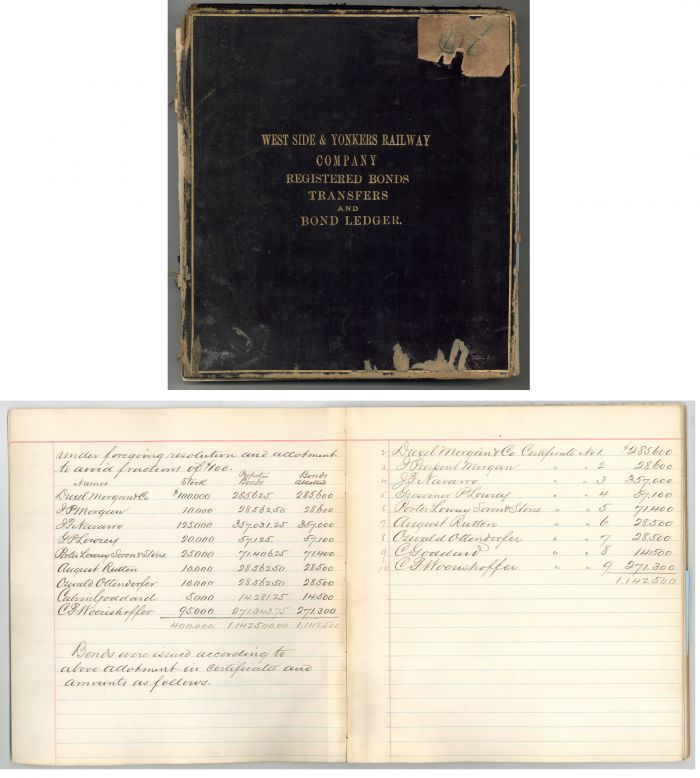 WEST SIDE & YONKERS RAILWAY
COMPANY
REGISTERED BONDS
TRANSFERS
AND
BOND LEDGER.
under foregoing resolution and allotment
to avoid fractions of $100.
Names Stock Bonds Bonds Allotted
Drexel Morgan & Co $100.000 285625 285600
J P Morgan 10.000 28.56250 28600
J F Navarro 125000 357,031.25 357,000
G P Lowrey 20.000 57,125 57,100
Porter Lowrey Soren & Stone 25000 71.40625 71,400
August Rutten 10,000 28.56250 28500
Oswald Ottendorfer 10,000 28.56250 28500
Calvin Goddard 5000 14.281.25 14.500
C F Woerishoffer 95.000 271.343.75 271.300
400.000 1,142500.00 1,142500
Bonds were issued according to
above allotment in Certificates and
amounts as follows.
2 Drexel Morgan & Co Certificate No 1. $285600
3 J Pierpont Morgan " " 2 28.600
4 J F Navarro " " 3 357,000
5 Grosvenor P Lowrey " " 4 57,100
6 Porter Lowrey Soren & Stone " " 5 71.400
7 August Rutten " " 6 28.500
8 Oswald Ottendorfer " " 7 28.500
9 C Goddard " " 8 14.500
10 C F Woerishoffer " " 9 271.300
1.142500